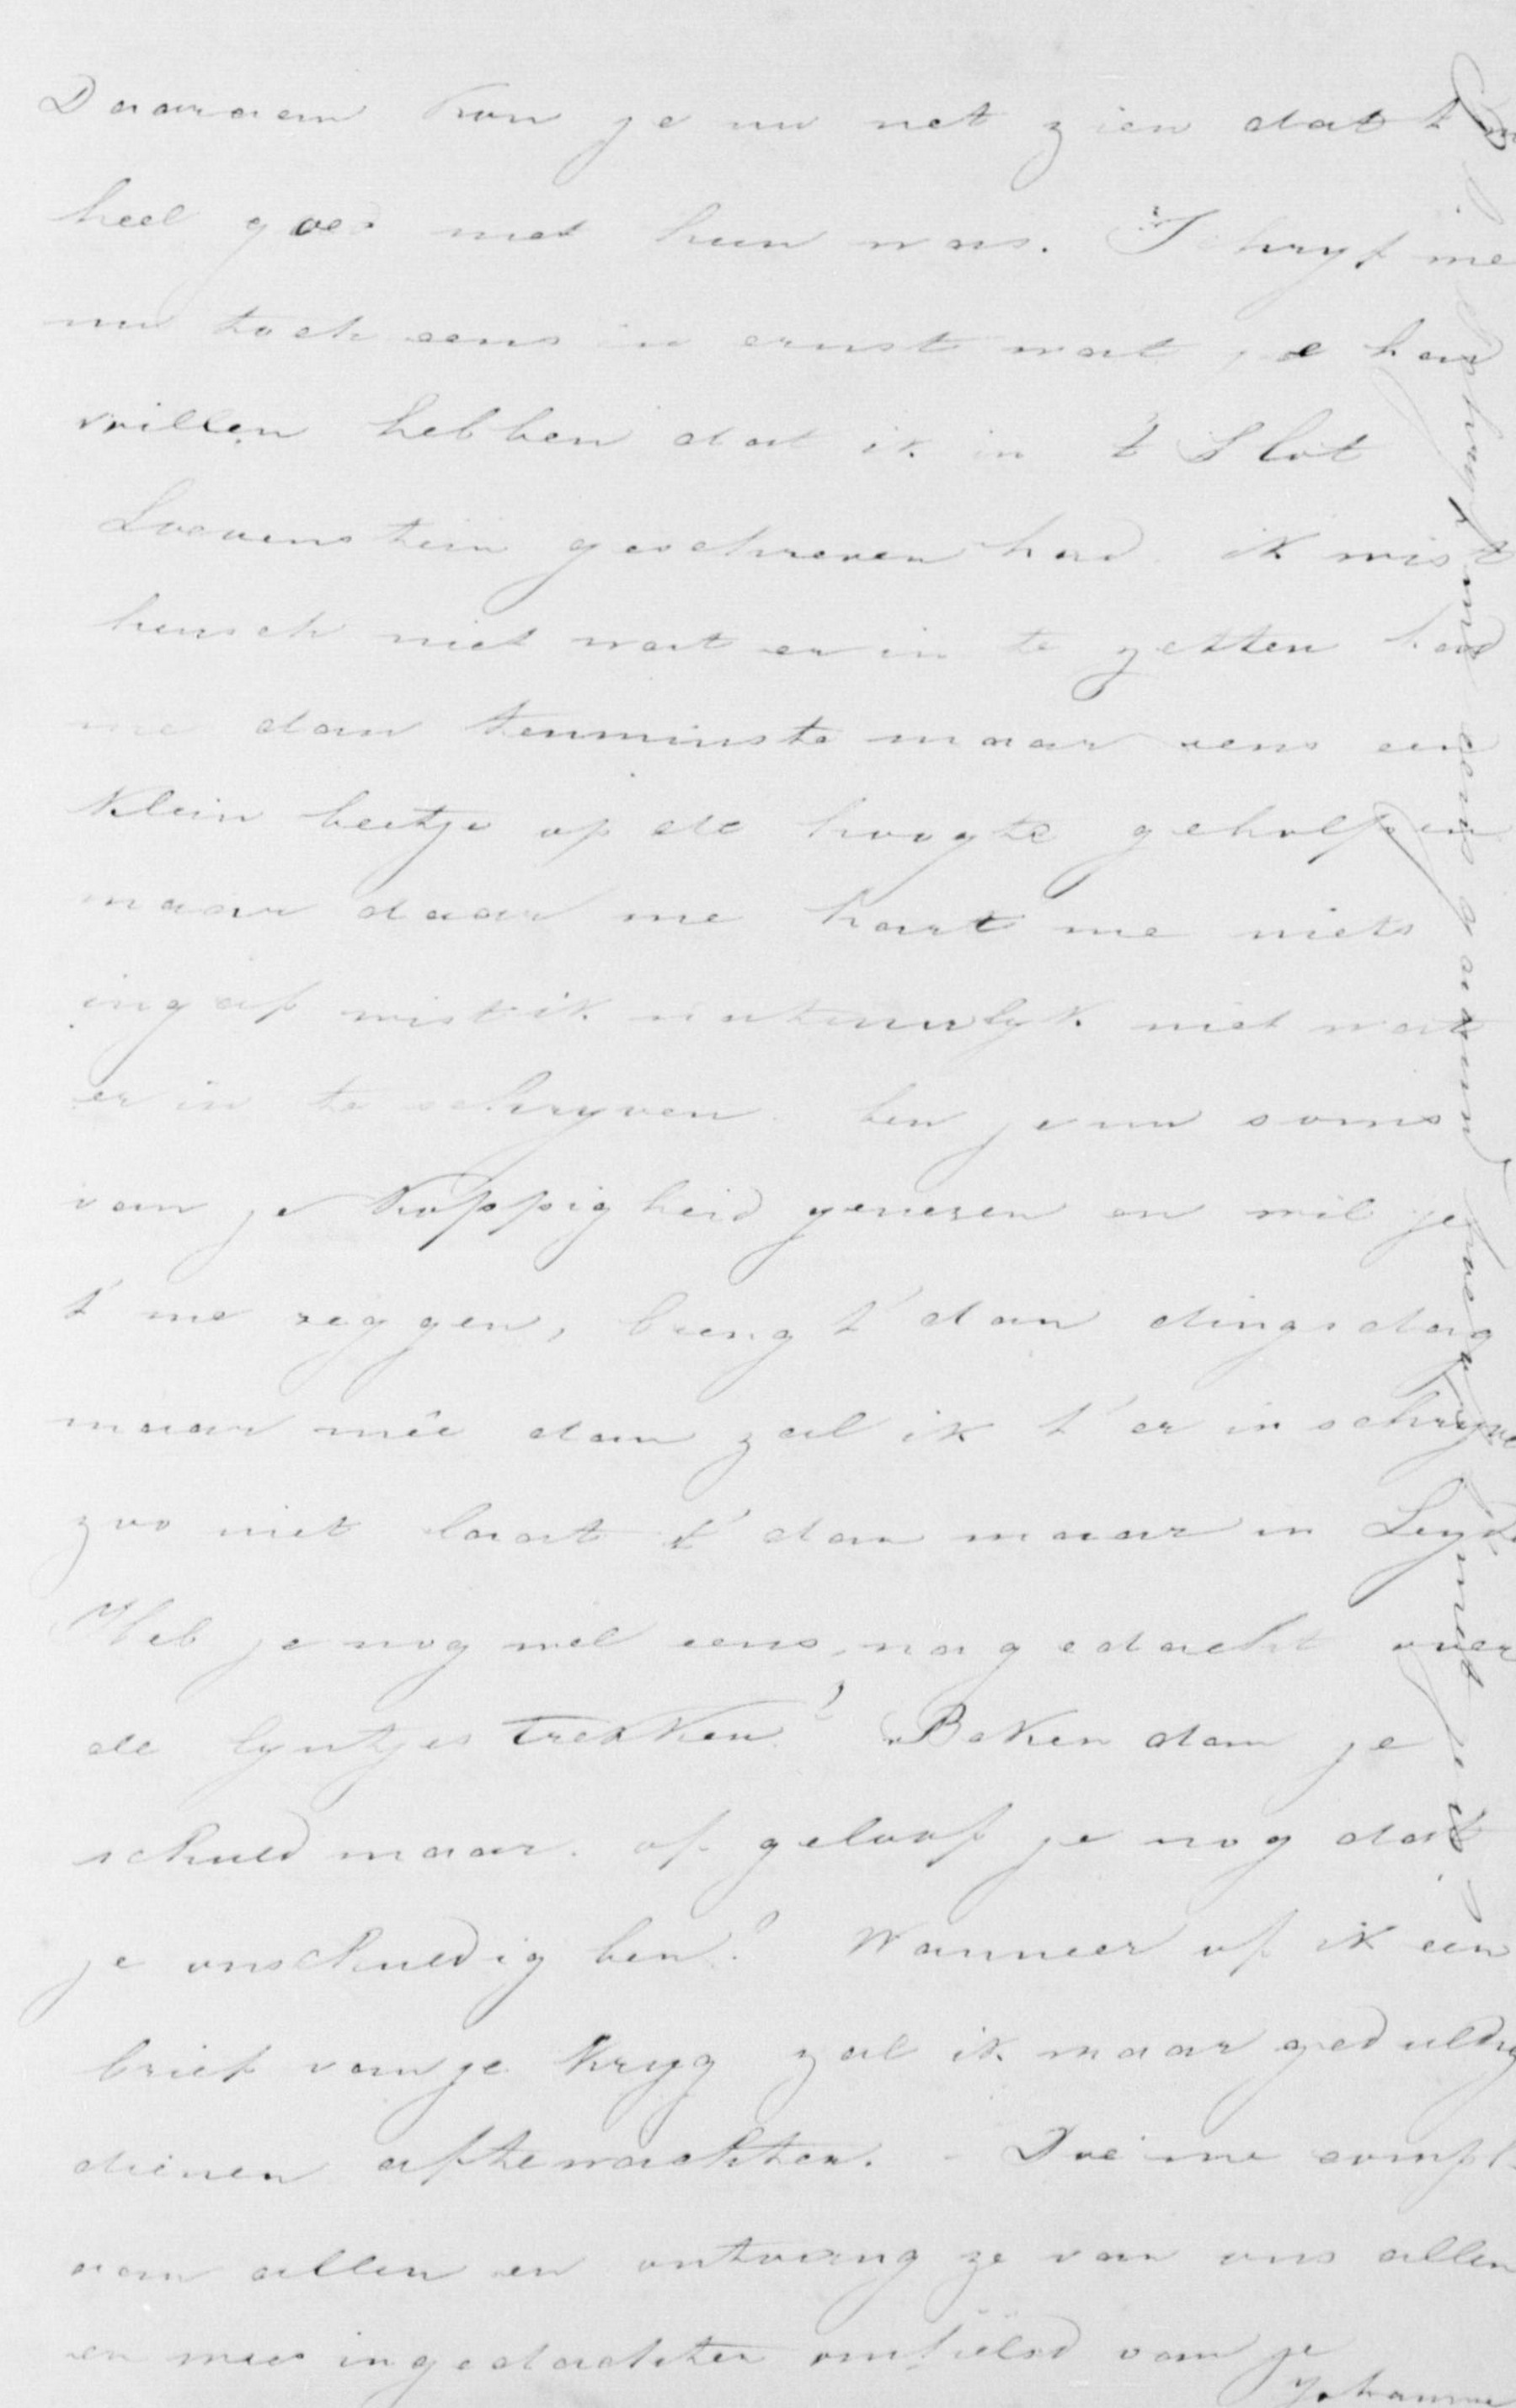 Daaraan kon je nu net zien dat t
heel goed met hun was. Schryf me
nu toch eens in ernst wat je had
willen hebben dat ik in 't Slot
Loevenstein geschreven had. ik wist
heusch niet wat er in te zetten had
me dan tenminste maar eens een
klein beetje op de hoogte geholpen
maar daar me hart me niets
ingaf wist ik natuurlyk niet wat
er in te schryven. ben je nu soms
van je koppigheid genezen en wil je
t' me zeggen, breng t' dan dingsdag
maar mêe dan zal ik t' er in schryve
zoo niet laat t' dan maar in Leyde
Heb je nog wel eens nagedacht over
de lyntjes trekken? Beken dan je
schuld maar. of geloof je nog dat
je onschuldig ben? Wanneer of ik een
brief van je kryg zal ik maar geduldig
dienen aftewachten. - Doe me compl.
aan allen en ontvang ze van ons allen
en wees in gedachten omhelsd van je
Johanna
schryft me eens gauw